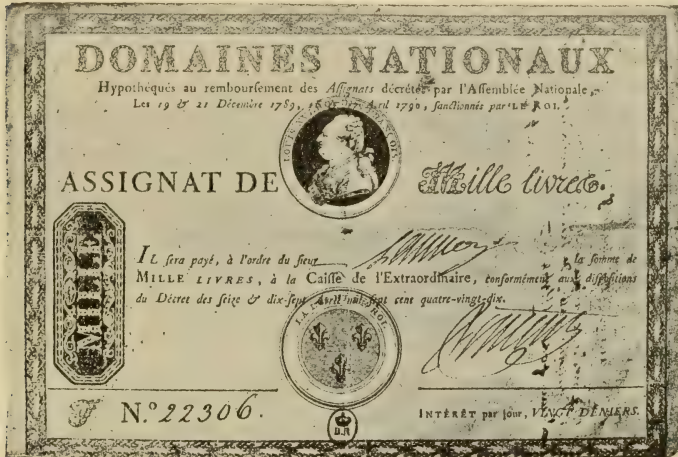 DOMAINES NATIONAUX
Hypothéqués au remboursement des Assignats décrétés par l'Assemblée Nationale,
Les 19 & 21 Décembre 1789, 16 & 17 Avril 1790, sanctionnés par LE ROI.
ASSIGNAT DE Mille livres.
MILLE
IL sera payé, à l'ordre du sieur la somme de
MILLE LIVRES, à la Caisse de l'Extraordinaire, conformément aux dispositions
du Décret des seize & dix-sept Avril mil sept cent quatre-vingt-dix.
LA LOI ROI.
N.º 22306.
INTÉRÊT par jour, VINGT DENIERS.
D.N